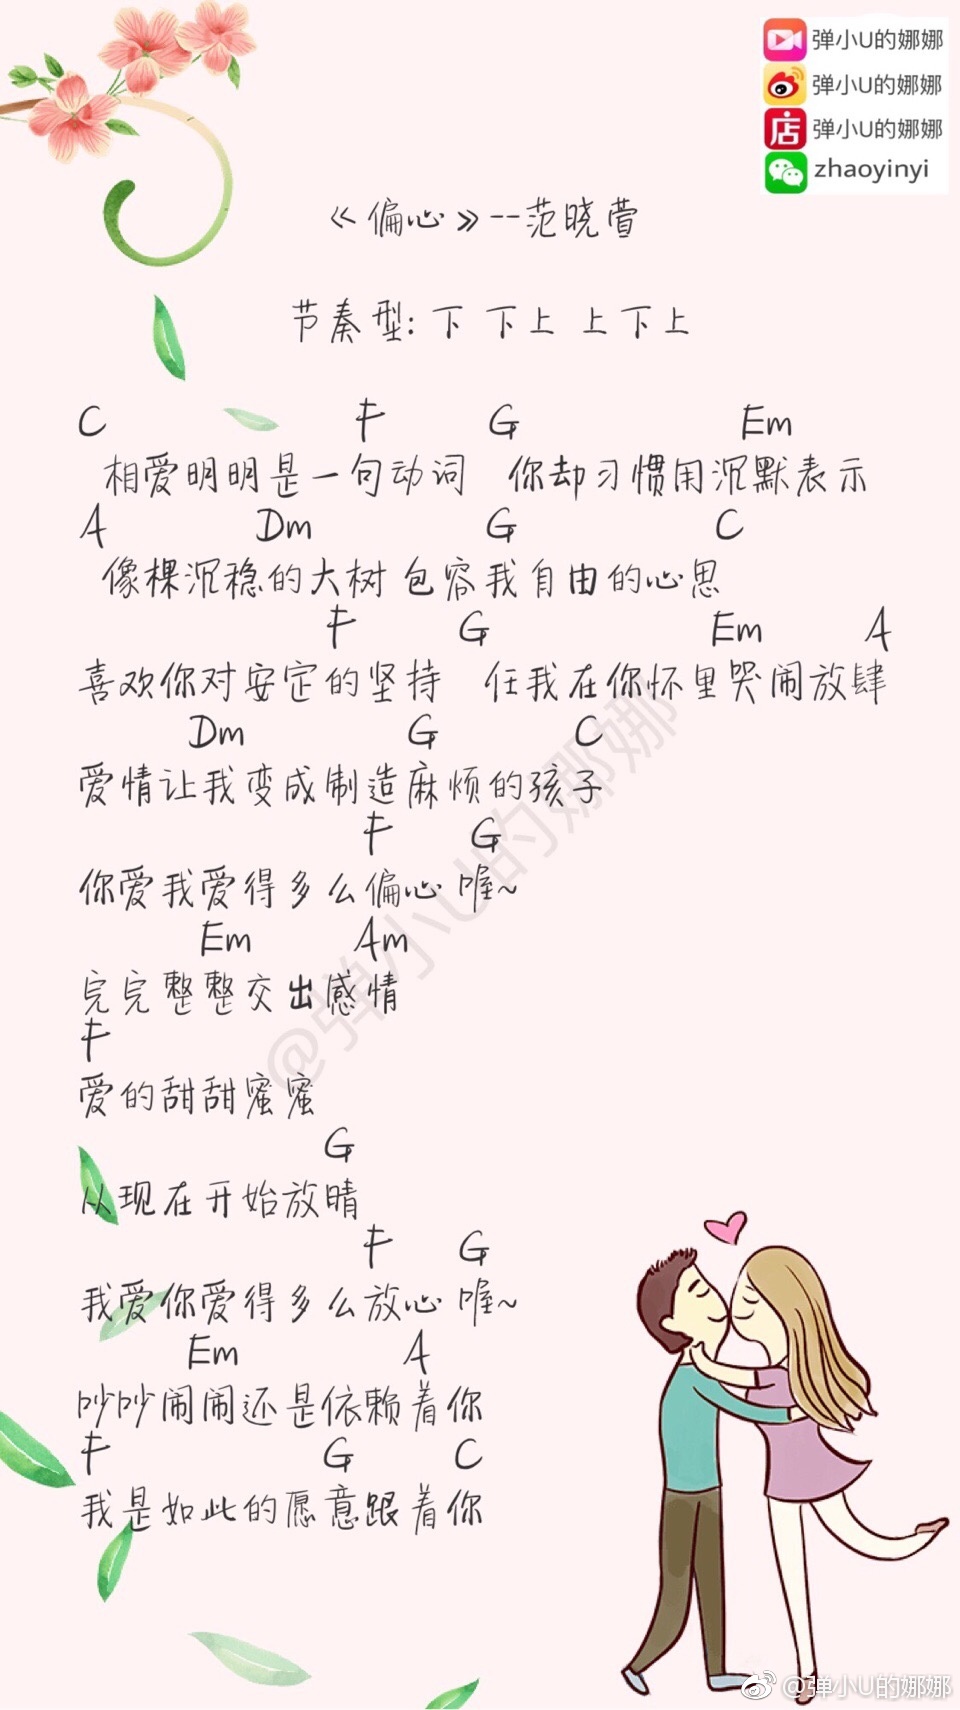 弹小U的娜娜
弹小U的娜娜
店 弹小U的娜娜
zhaoyinyi
《偏心》--范晓萱
节奏型: 下 下上 上下上
C F G Em
相爱明明是一句动词 你却习惯用沉默表示
A Dm G C
像棵沉稳的大树 包容我自由的心思
F G Em A
喜欢你对安定的坚持 任我在你怀里哭闹放肆
Dm G C
爱情让我变成制造麻烦的孩子
F G
你爱我爱得多么偏心 喔~
Em Am
完完整整交出感情
F
爱的甜甜蜜蜜
G
从现在开始放晴
F G
我爱你爱得多么放心 喔~
Em A
吵吵闹闹还是依赖着你
F G C
我是如此的愿意跟着你
@弹小U的娜娜
@弹小U的娜娜